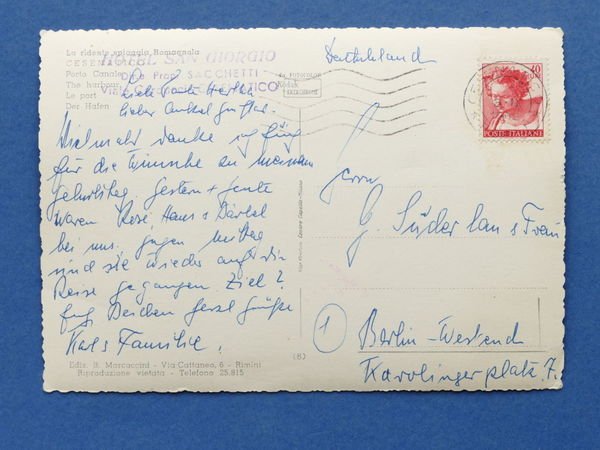 La ridente spiaggia Romagnola
CESENATICO
Porto Canale
The harbour
Le port
Der Hafen
HOTEL SAN GIORGIO
Prop. SACCHETTI
Kodak
EKTACHROME
Deutschland
40
POSTE ITALIANE
lieber Onkel Gustav.
Vielmals danke ich für
für die Wünsche zu meinem
Geburtstag. Gestern + heute
waren Rose, Hans + Bärbel
bei uns. Gegen Mittag
sind sie wieder auf die
Reise gegangen. Ziel?
Euch Beiden herzl Grüße
Karls Familie.
Herrn
G. Süder u. Frau
1 Berlin-Westend
Karolingerplatz 7.
(8)
Ediz. B. Marcaccini - Via Cattaneo, 6 - Rimini
Riproduzione vietata - Telefono 25.815